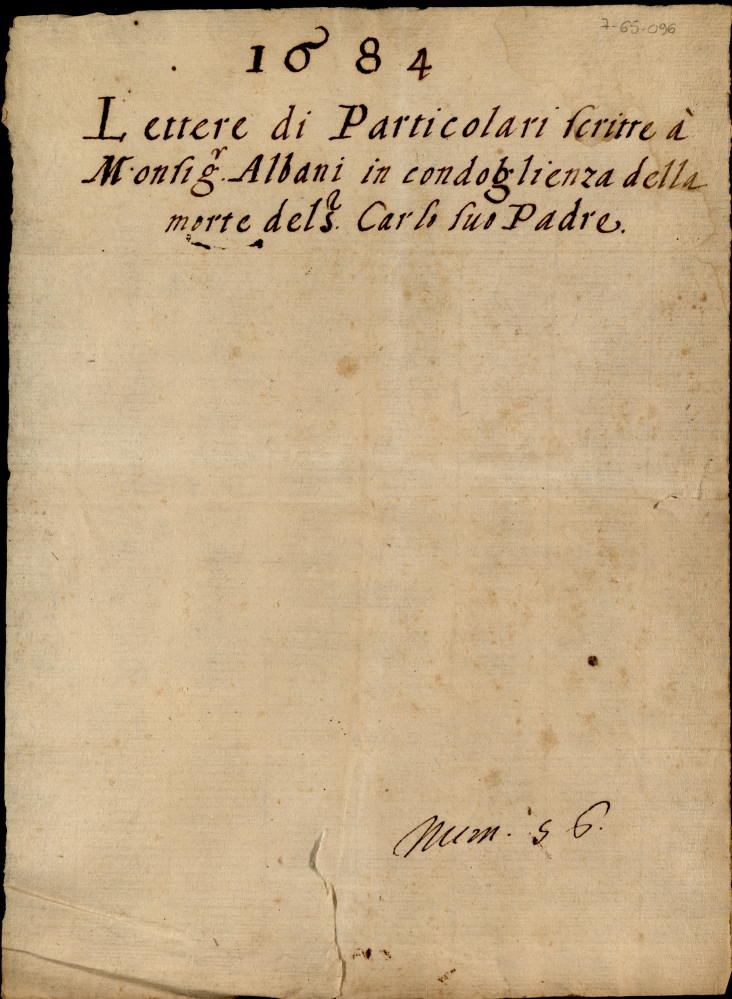 7-65-096
1684
Lettere di Particolari scritte à
Monsig.r Albani in condoglienza della
morte del S.r Carlo suo Padre.
Num. 56.